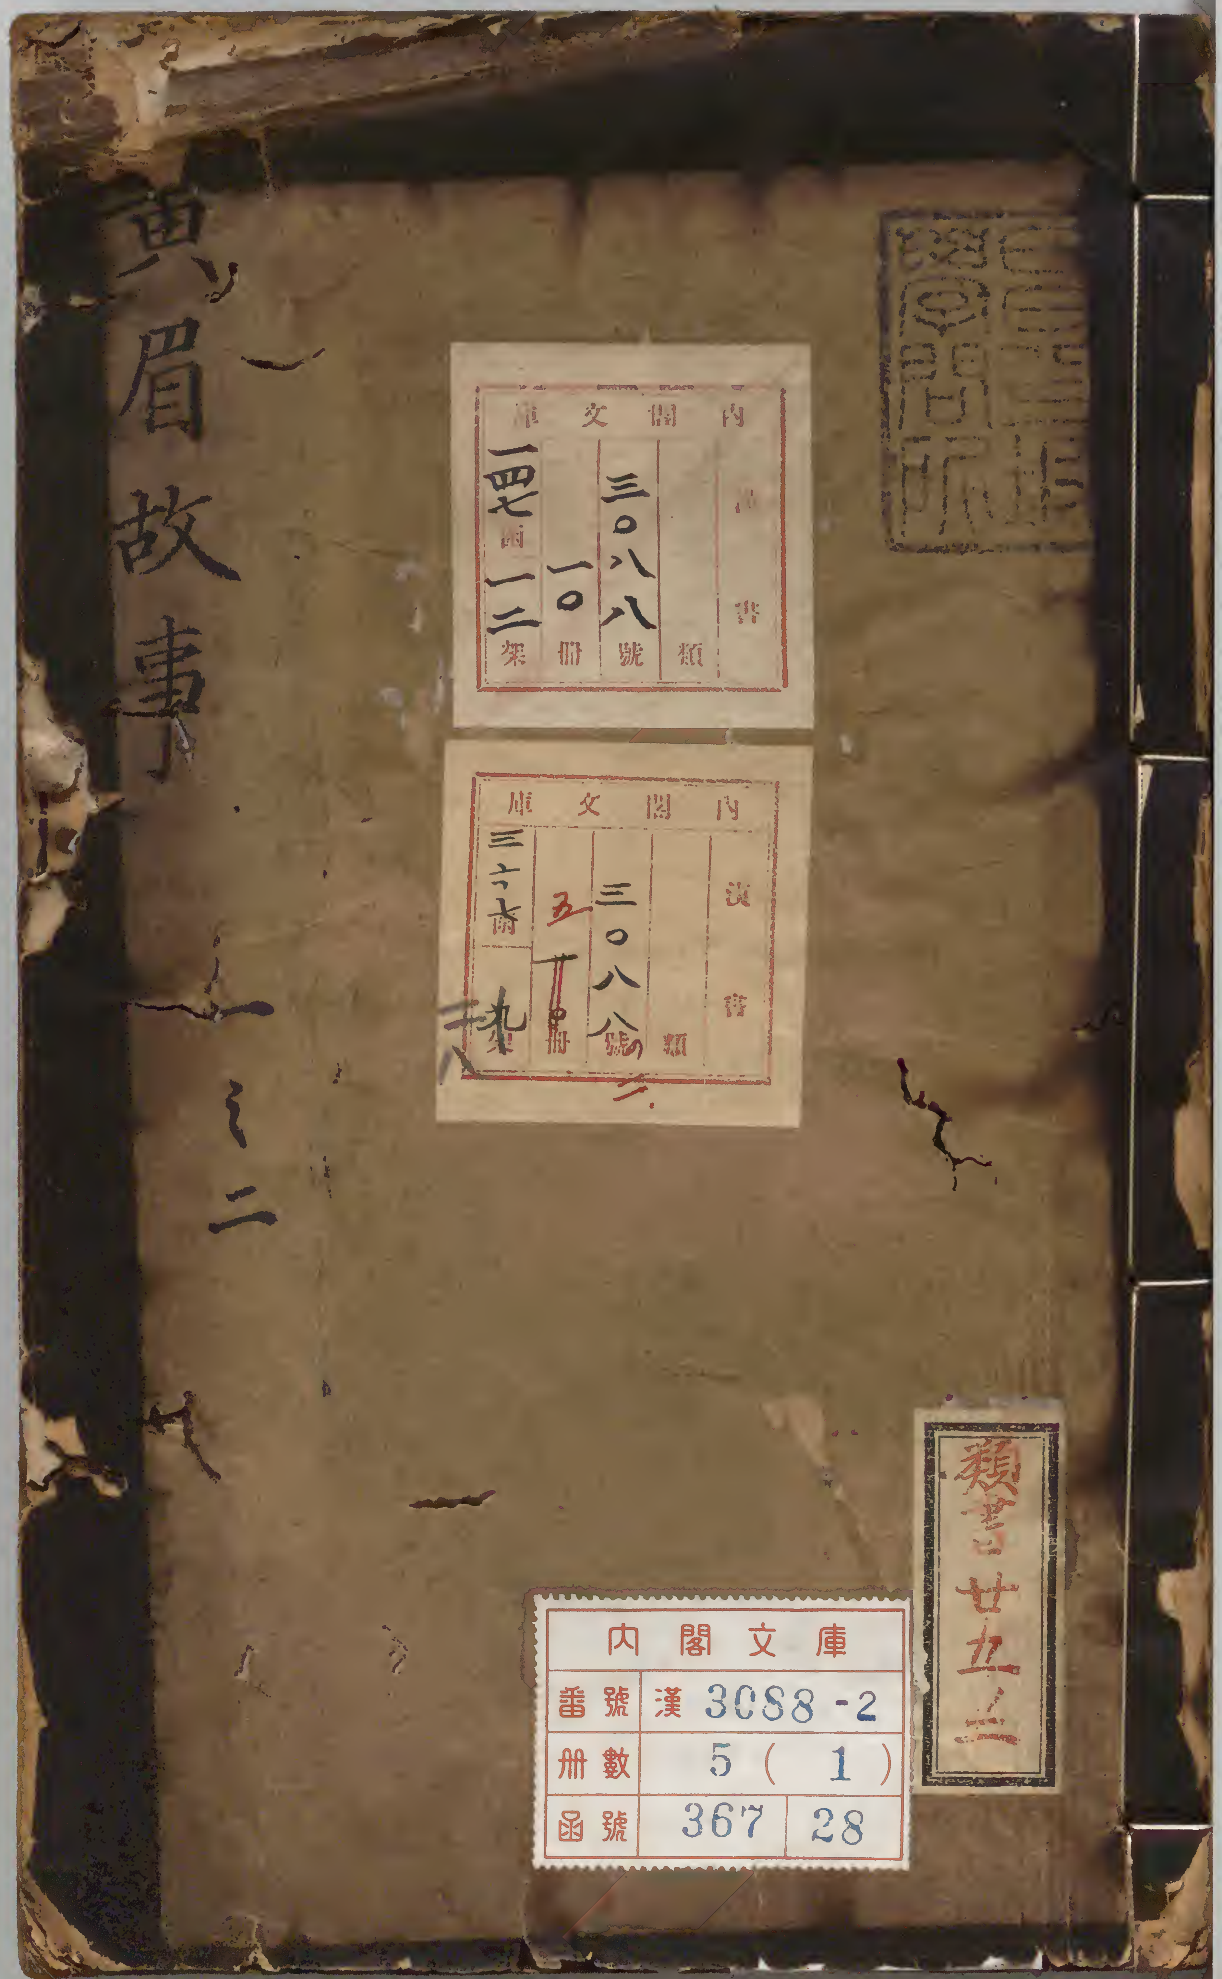 黄眉故事
一之二
内閣文庫
漢書
類
三〇八八號
一〇冊
一四七函
一二架
内閣文庫
漢書
類
三〇八八號
五
冊
函
九架
類書廿五
内閣文庫
番號 漢 3088-2
册數 5(1)
函號 367 28